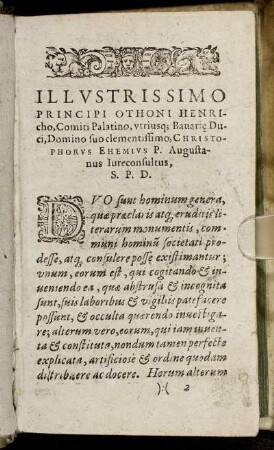 ILLVSTRISSIMO
PRINCIPI OTHONI HENRI-
cho, Comiti Palatino, vtriusq; Bauarię Du-
ci, Domino suo clementissimo, CHRISTO-
PHORVS EHEMIVS P. Augusta-
nus Iureconsultus,
S. P. D.
DVO sunt hominum genera,
quæ præclaris atq, eruditis li-
terarum monumentis, com-
muni hominū societati pro-
desse, atq, consulere posse existimantur;
vnum, eorum est, qui cogitando & in-
ueniendo ea, quæ abstrusa & incognita
sunt, suis laboribus & vigiliis patefacere
possunt, & occulta querendo inuestiga-
re; alterum vero, eorum, qui iam inuen-
ta & constituta, nondum tamen perfecte
explicata, artificiosè & ordine quodam
distribuere ac docere. Horum alterum
):( 2